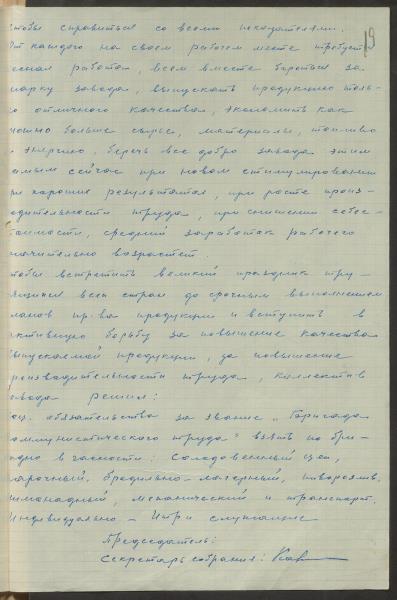 чтобы справиться со всеми показателями.
19
От каждого на своем рабочем месте требует
работа, всем вместе бороться за
марку завода, выпускать продукцию толь-
ко отличного качества, экономить как
можно больше сырье, материалы, топливо
и энергию, беречь все добро завода этим
самым сейчас при новом стимулировании
при хороших результатах, при росте произ-
водительности труда, при снижении себес-
тоимости, средний заработок рабочего
значительно возрастет.
Чтобы встретить великий праздник тру-
дящихся всех стран до срочным выполнением
планов пр-ва продукции и вступить в
активную борьбу за повышение качества
выпускаемой продукции, за повышение
производительности труда, коллектив
завода решил:
соц. обязательства за звание "Бригада
коммунистического труда" взять по бри-
гадно в частности: Солодовенный цех,
варочный, бродильно-лагерный, товоразлив.
лимонадный, механический и транспорт.
Индивидуально - Итр и служащие
Председатель:
Секретарь собрания: